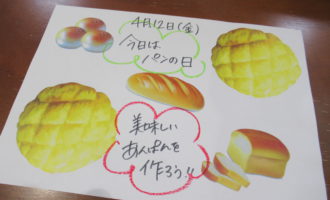 4月12日(金)
今日は
パンの日
美味しい
あんぱんを
作ろう!!